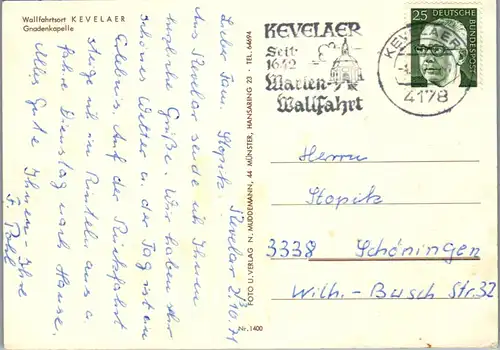 Wallfahrtsort KEVELAER
Gnadenkapelle
Kevelaer 2/3 10.71
Lieber Fam. Stopitz.
Aus Kevelaer sende ich Ihnen
herzliche Grüße. Wir haben ein
schönes Wetter u. der Tag ist ein
Erlebnis. Auf der Rückfahrt
steige ich in Rinteln aus u.
fahre Dienstag nach Hause.
Alles Gute Ihnen Ihre
F.
FOTO U. VERLAG N. MUDDEMANN, 44 MÜNSTER, HANSARING 23 - TEL. 64694
Nr. 1400
KEVELAER
Seit
1642
Marien-
Wallfahrt
KEVELAER
4178
25
DEUTSCHE BUNDESPOST
Herrn
Stopitz
3338 Schöningen
Wilh.-Busch Str. 32